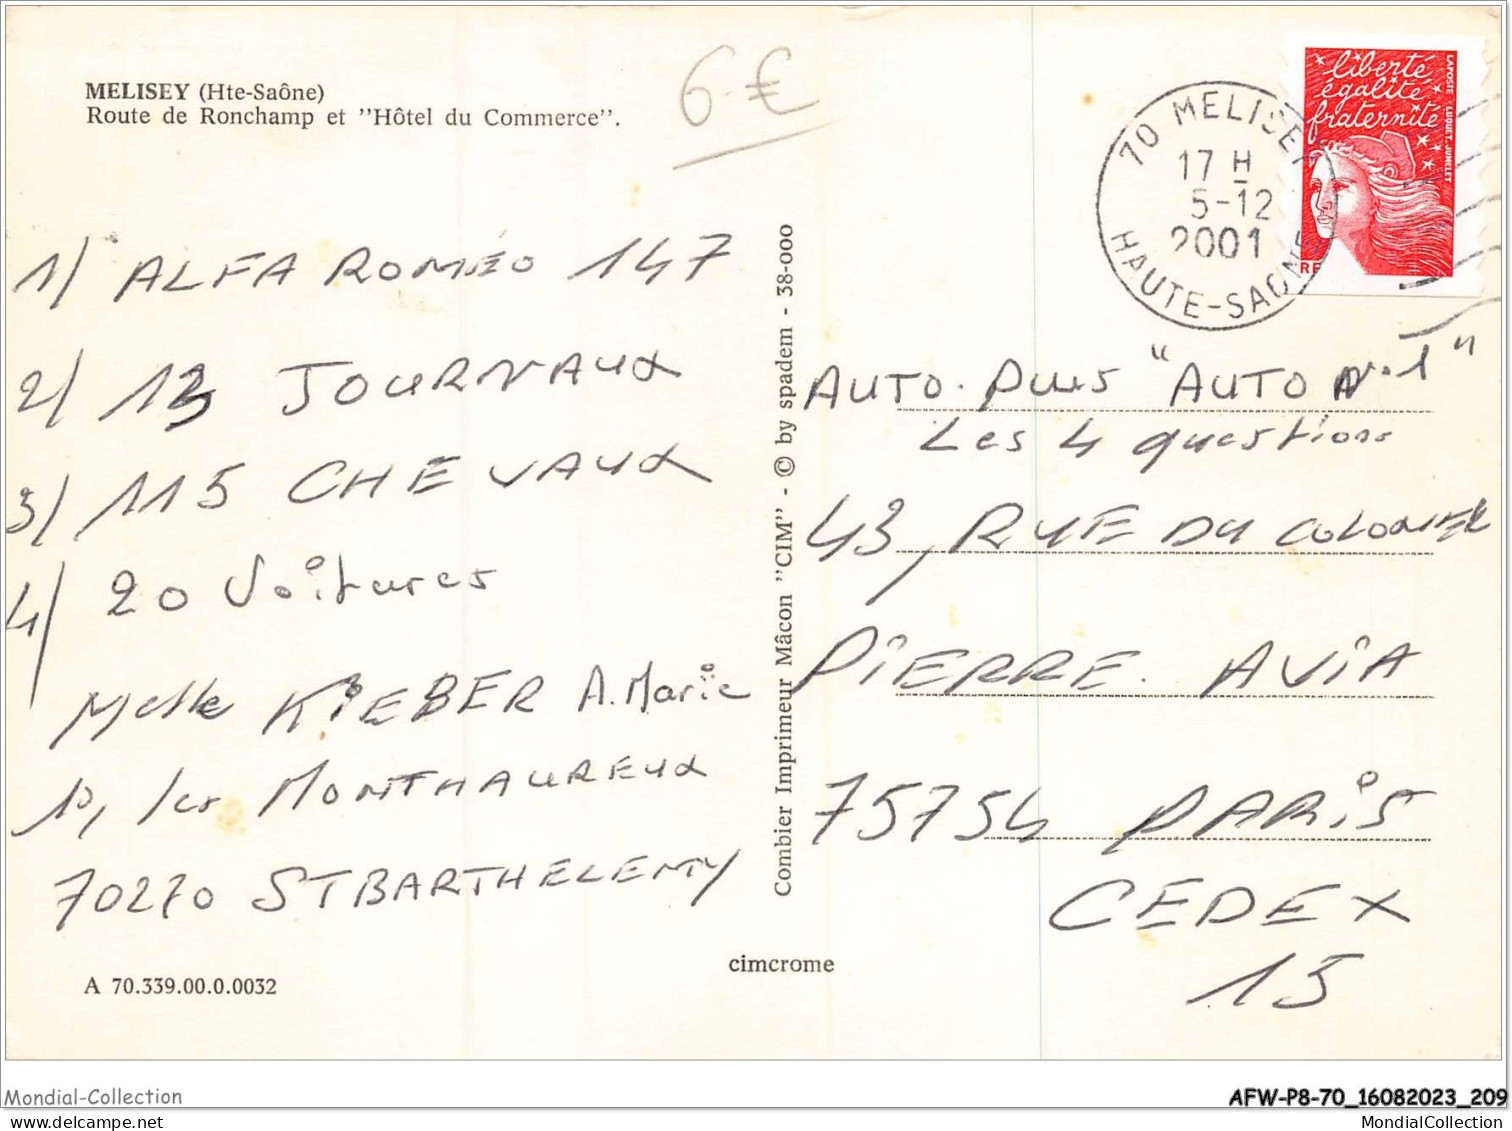 MELISEY (Hte-Saône)
Route de Ronchamp et "Hôtel du Commerce".
6 €
70 MELISEY
17 H
5-12
2001
HAUTE-SAONE
liberté
égalité
fraternité
LAPOSTE LUQUET.JUMELET
RF
1/ ALFA ROMÉO 147
2/ 13 JOURNAUX
3/ 115 CHEVAUX
4/ 20 Voitures
Melle KIEBER A.Marie
10, les MONTHAUREUX
70270 ST BARTHELEMY
A 70.339.00.0.0032
Combier Imprimeur Mâcon "CIM" - © by spadem - 38-000
cimcrome
AUTO. Plus "AUTO N°1"
Les 4 questions
43, RUE DU COLONEL
PIERRE. AVIA
75754 PARIS
CEDEX
15
Mondial-Collection
AFW-P8-70_16082023_209
MondialCollection